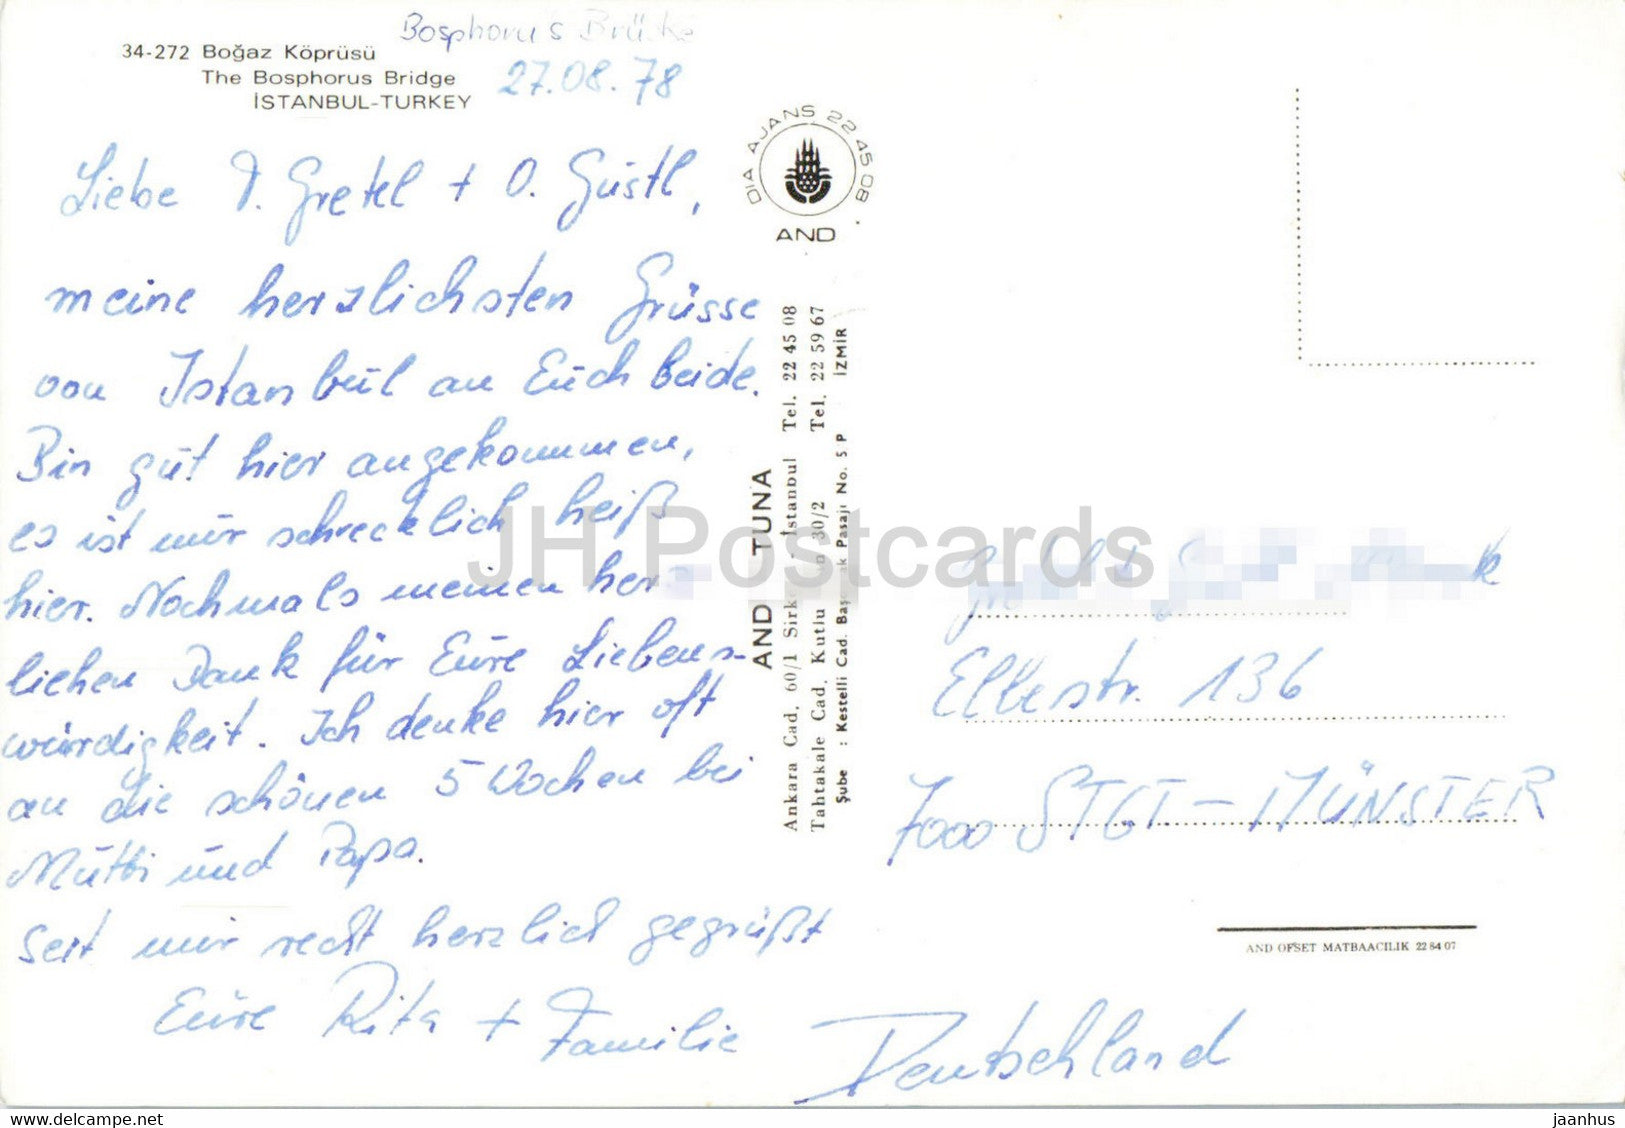 Bosphorus Brücke
34-272 Boğaz Köprüsü
The Bosphorus Bridge
İSTANBUL-TURKEY
27.08.78
Liebe T. Gretel + O. Gustl,
meine herzlichsten Grüsse
von Istanbul an Euch beide.
Bin gut hier angekommen,
es ist nur schrecklich heiß
hier. Nochmals meinen herz
lichen Dank für Eure Liebens-
würdigkeit. Ich denke hier oft
an die schönen 5 Wochen bei
Mutti und Papa.
Seit mir recht herzlich gegrüßt
Eure Rita + Familie
DIA AJANS 22 45 08
AND
AND TUNA
Ankara Cad. 60/1 Sirkeci İstanbul Tel. 22 45 08
Tahtakale Cad. Kutlu 30/2 Tel. 22 59 67
Şube : Kestelli Cad. Başdurak Pasajı No. 5 P İZMİR
JH Postcards
Ellestr. 136
7000 STGT-MÜNSTER
Deutschland
AND OFSET MATBAACILIK 22 84 07
jh-postcards.delcampe.net
jaanhus